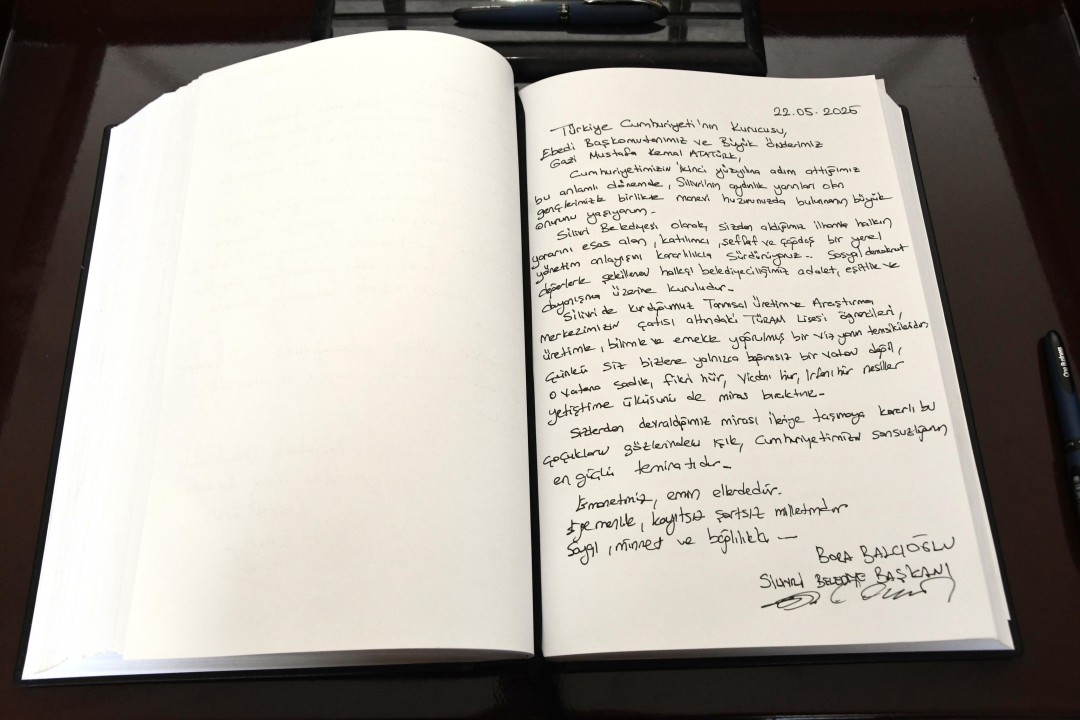 22.05.2025
Türkiye Cumhuriyeti'nin Kurucusu,
Ebedi Başkomutanımız ve Büyük Önderimiz
Gazi Mustafa Kemal ATATÜRK,
Cumhuriyetimizin ikinci yüzyılına adım attığımız
bu anlamlı dönemde, Silivri'nin aydınlık yarınları olan
gençlerimizle birlikte manevi huzurunuzda bulunmanın büyük
onurunu yaşıyorum.
Silivri Belediyesi olarak, sizden aldığımız ilhamla halkın
yararını esas alan, katılımcı, şeffaf ve çağdaş bir yerel
yönetim anlayışını kararlılıkla sürdürüyoruz. Sosyal demokrat
değerlerle şekillenen halkçı belediyeciliğimiz adalet, eşitlik ve
dayanışma üzerine kuruludur.
Silivri'de kurduğumuz Tarımsal Üretim ve Araştırma
merkezimizin çatısı altındaki TÜRAM Lisesi öğrencileri,
üretimle, bilimle ve emekle yoğrulmuş bir vizyonun temsilcileridir
Çünkü siz bizlere yalnızca bağımsız bir vatan değil,
o vatana sadık, fikri hür, vicdanı hür, irfanı hür nesiller
yetiştirme ülküsünü de miras bıraktınız.
Sizlerden devraldığımız mirası ileriye taşımaya kararlı bu
çocukların gözlerindeki ışık, Cumhuriyetimizin sonsuzluğunun
en güçlü teminatıdır.
Emanetiniz, emin ellerdedir.
Egemenlik, kayıtsız şartsız milletindir
Saygı, minnet ve bağlılıkla
BORA BALCIOĞLU
SİLİVRİ BELEDİYE BAŞKANI